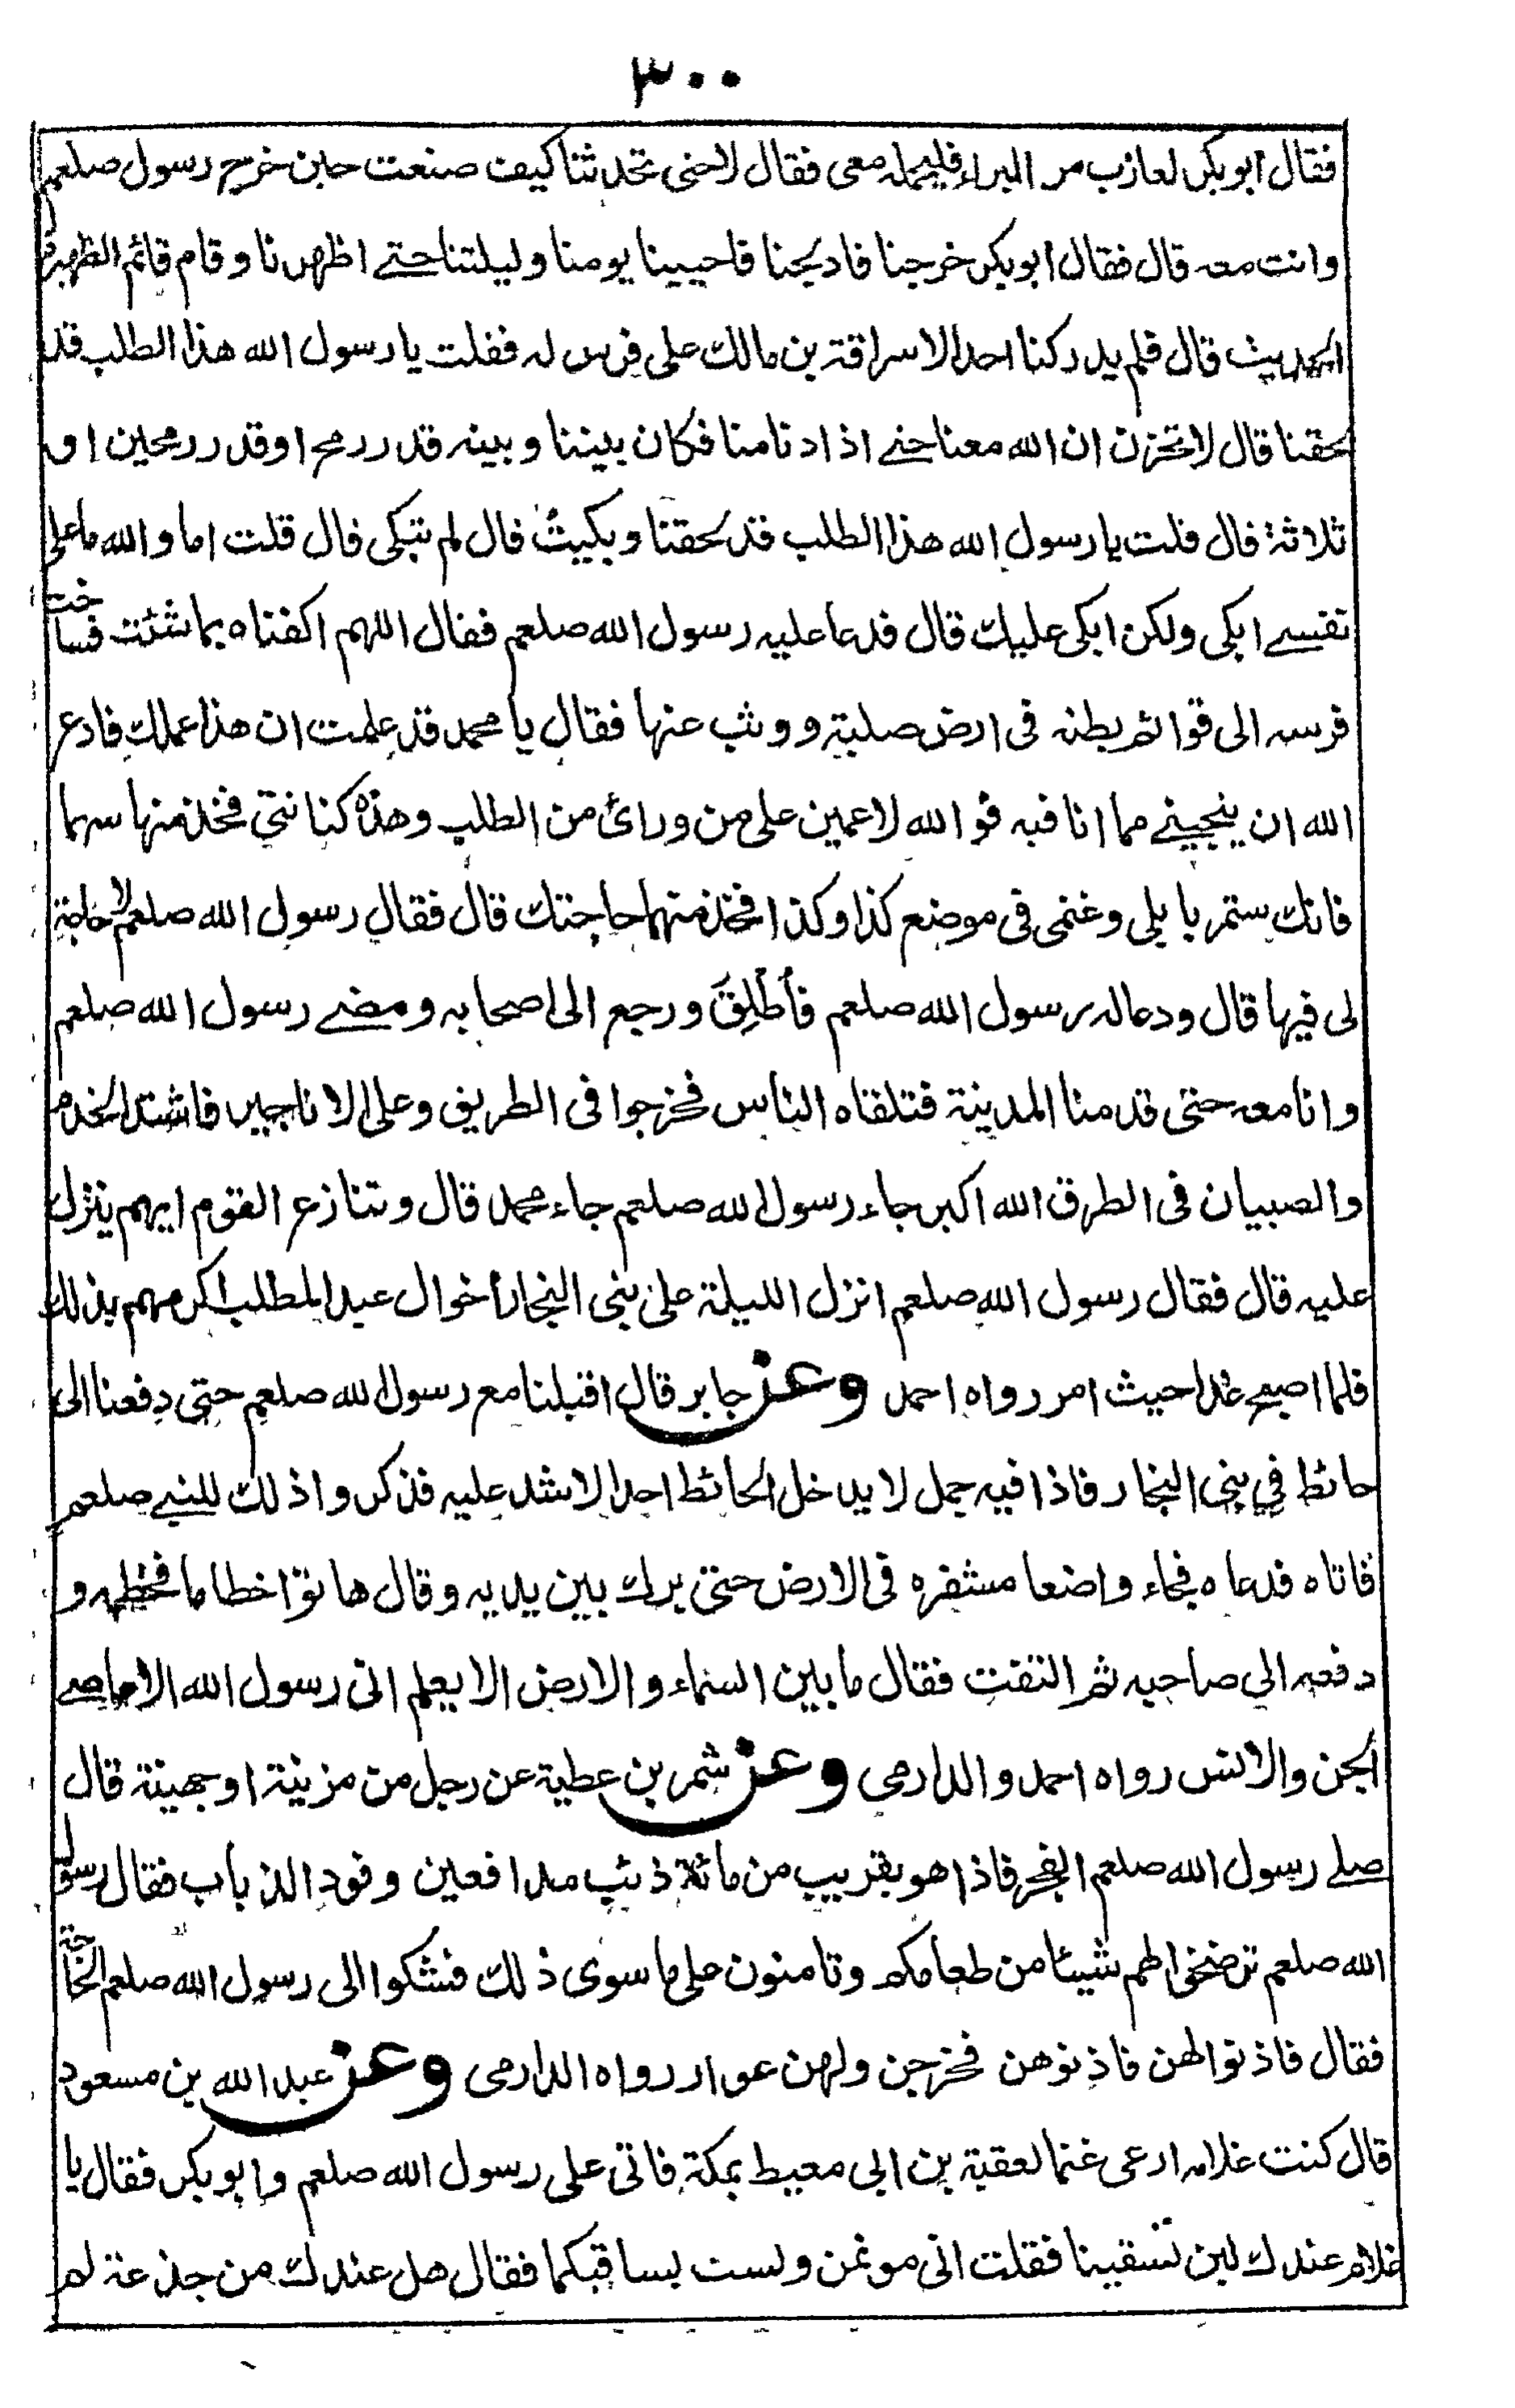 ٣٠٠
فقال ابوبكر لعازب مر البراء فليحمله معى فقال لا حتى تحدثنا كيف صنعت حين خرج رسول صلعم
وانت معه قال فقال ابوبكر خرجنا فادلجنا فاحيينا يومنا وليلتنا حتے اظهرنا وقام قائم الظهيرة
الحديث قال فلم يدركنا احد الا سراقة بن مالك على فرس له فقلت يا رسول الله هذا الطلب قد
لحقنا قال لا تحزن ان الله معنا حتے اذا دنا منا فكان بيننا وبينه قدر رمح او قدر رمحين او
ثلاثة قال قلت يا رسول الله هذا الطلب قد لحقنا وبكيت قال لم تبكى قال قلت اما والله ما على
نفسے ابكى ولكن ابكى عليك قال فدعا عليه رسول الله صلعم فقال اللهم اكفناه بما شئت فساخت
فرسه الى قوائم بطنه فى ارض صلبة ووثب عنها فقال يا محمد قد علمت ان هذا عملك فادع
الله ان ينجينے مما انا فيه فو الله لاعمين على من ورائ من الطلب وهذه كنانتي فخذ منها سهما
فانك ستمر بابلى وغنمى فى موضع كذا وكذا فخذ منهما حاجتك قال فقال رسول الله صلعم لا حاجة
لى فيها قال ودعا له رسول الله صلعم فأُطْلِقَ ورجع الى اصحابه ومضے رسول الله صلعم
وانا معه حتى قدمنا المدينة فتلقاه الناس فخرجوا فى الطريق وعلى الاناجير فاشتد الخدم
والصبيان فى الطرق الله اكبر جاء رسول الله صلعم جاء محمد قال وتنازع القوم ايهم ينزل
عليه قال فقال رسول الله صلعم انزل الليلة على بنى النجار أخوال عبد المطلب لاكرمهم بذلك
فلما اصبح غدا حيث امر رواه احمد وعن جابر قال اقبلنا مع رسول الله صلعم حتى دفعنا الى
حائط في بني النجار فاذا فيه جمل لا يدخل الحائط احد الا شد عليه فذكروا ذلك للنبے صلعم
فاتاه فدعاه فجاء واضعا مشفره فى الارض حتى برك بين يديه وقال هاتوا خطاما فخطمه و
دفعه الى صاحبه ثم التفت فقال ما بين السماء والارض الا يعلم انى رسول الله الا عاصے
الجن والانس رواه احمد والدارمى وعن شمر بن عطية عن رجل من مزينة او جهينة قال
صلے رسول الله صلعم الفجر فاذا هو بقريب من مائة ذئب مدافعين وفود الذياب فقال رسول
الله صلعم ترضخوا لهم شيئا من طعامكم وتامنون على ما سوى ذلك فشكوا الى رسول الله صلعم الحاجة
فقال فاذنوا لهن فاذنوهن فخرجن ولهن عوار رواه الدارمى وعن عبد الله بن مسعود
قال كنت غلاما ارعى غنما لعقبة بن ابى معيط بمكة فاتى على رسول الله صلعم وابوبكر فقال يا
غلام عندك لبن تسقينا فقلت انى موتمن ولست بساقيكما فقال هل عندك من جذعة لم